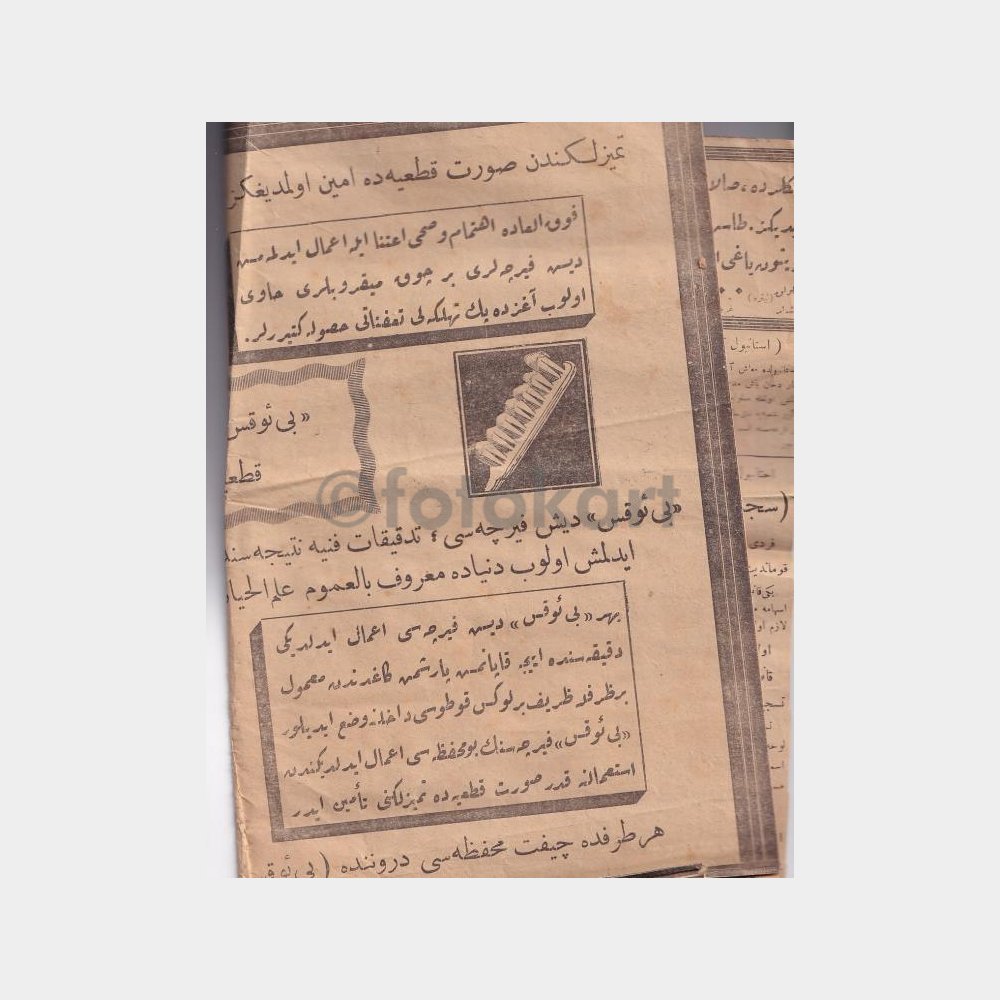 تمیزلكندن صورت قطعیه‌ده امین اولمدیغكز
فوق العاده اهتمام و صحی اعتنا ایله اعمال ایدلمه‌مس
دیس فیرچه‌لری بر چوق میقروبلری حاوی
اولوب آغزده پك تهلكه‌لی تعفناتی حصوله كتیررلر.
«بی ئوقس
قطعی
©fotokart
«بی ئوقس» دیش فیرچه‌سی ؛ تدقیقات فنیه نتیجه‌سنه
ایدلمش اولوب دنیاده معروف بالعموم علم الحیا
بهر «بی ئوقس» دیس فیرچه‌سی اعمال ایدلدیكی
دقیقه‌سنده ایچی قاپانمس پارشمن كاغدندن معمول
برظرفله ظریف بر لوكس قوطوسی داخلنه وضع ایدیلور
«بی ئوقس» فیرچه‌سنك بو محفظه‌سی اعمال ایدلدیكندن
استعمالنه قدر صورت قطعیه‌ده تمیزلكنی تأمین ایدر
هر طرفده چیفت محفظه‌سی دروننده (بی ئوق
یتون یاغی
( استانبول
(سجـ
فردی
قوماندیـ
اسهامه
لازم او